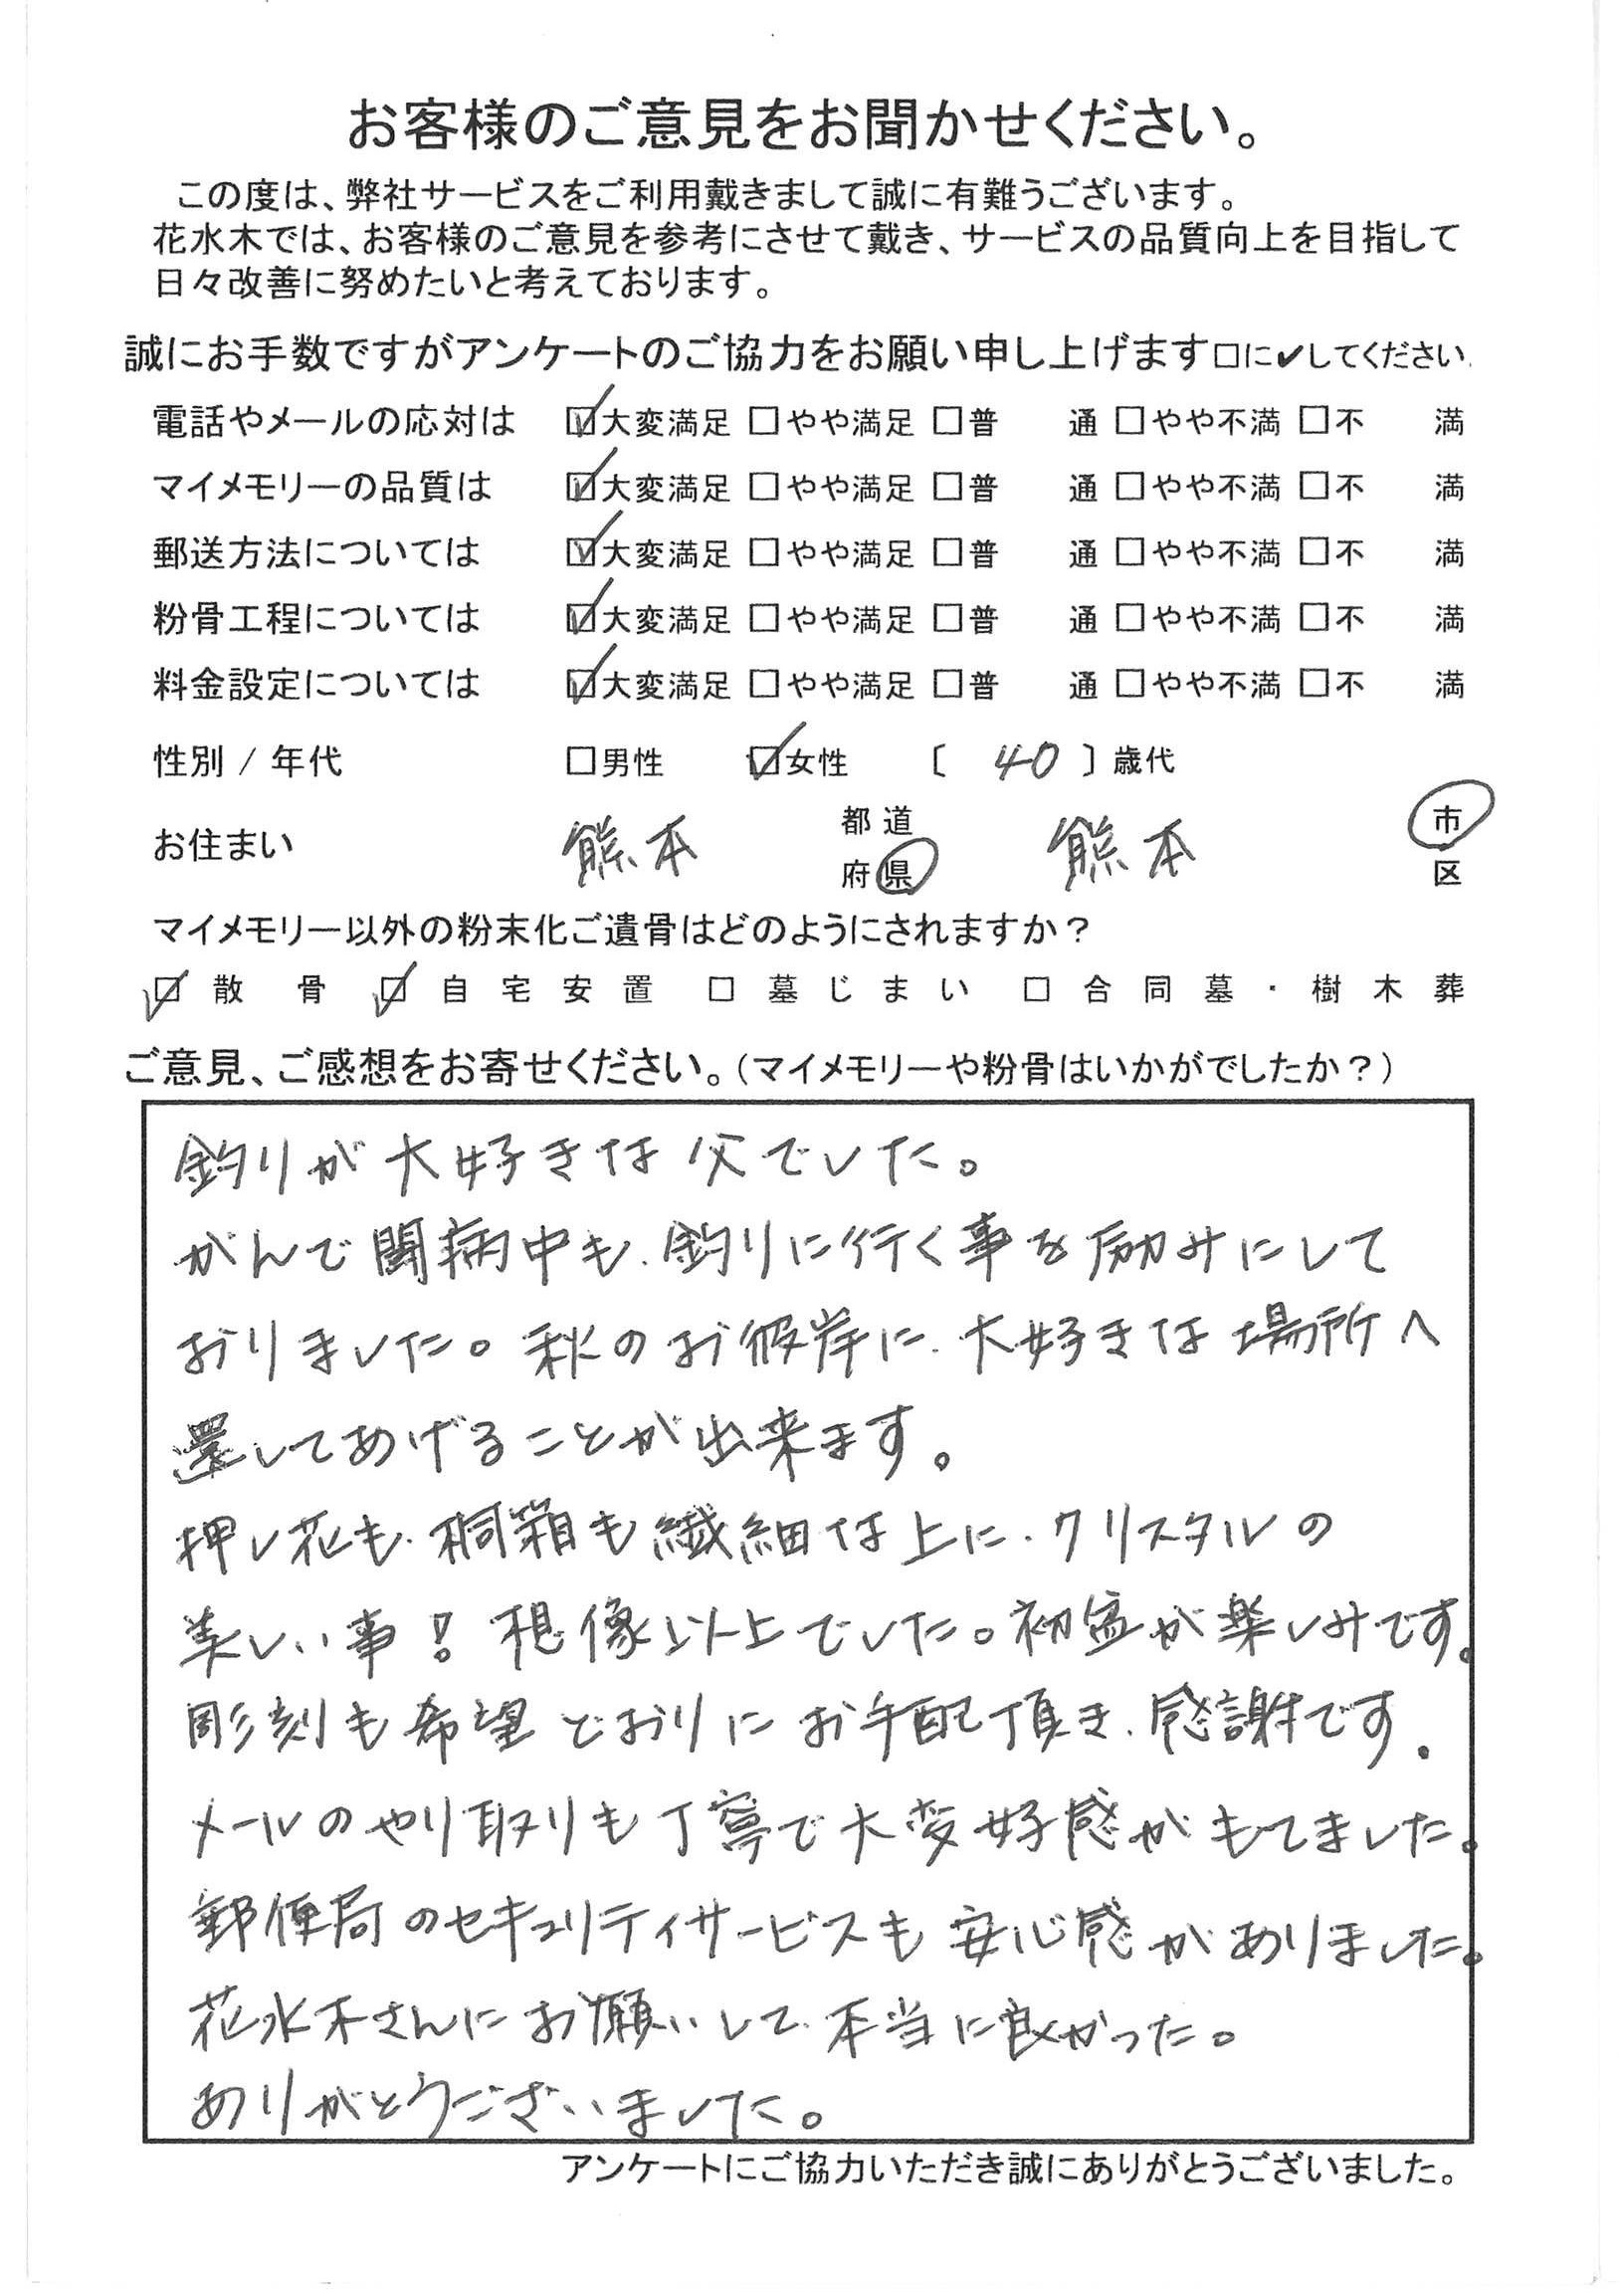 お客様のご意見をお聞かせください。
この度は、弊社サービスをご利用戴きまして誠に有難うございます。
花水木では、お客様のご意見を参考にさせて戴き、サービスの品質向上を目指して
日々改善に努めたいと考えております。
誠にお手数ですがアンケートのご協力をお願い申し上げます□に✔してください。
電話やメールの応対は ☑大変満足 □やや満足 □普 通 □やや不満 □不 満
マイメモリーの品質は ☑大変満足 □やや満足 □普 通 □やや不満 □不 満
郵送方法については ☑大変満足 □やや満足 □普 通 □やや不満 □不 満
粉骨工程については ☑大変満足 □やや満足 □普 通 □やや不満 □不 満
料金設定については ☑大変満足 □やや満足 □普 通 □やや不満 □不 満
性別 / 年代 □男性 ☑女性 〔 40 〕歳代
お住まい 熊本 都道府県 熊本 市区
マイメモリー以外の粉末化ご遺骨はどのようにされますか？
☑ 散骨 ☑ 自宅安置 □ 墓じまい □ 合同墓・樹木葬
ご意見、ご感想をお寄せください。（マイメモリーや粉骨はいかがでしたか？）
釣りが大好きな父でした。
がんで闘病中も、釣りに行く事を励みにして
おりました。秋のお彼岸に、大好きな場所へ
還してあげることが出来ます。
押し花も、桐箱も繊細な上に、クリスタルの
美しい事！想像以上でした。初盆が楽しみです。
彫刻も希望どおりにお手配頂き、感謝です。
メールのやり取りも丁寧で大変好感がもてました。
郵便局のセキュリティサービスも安心感がありました。
花水木さんにお願いして、本当に良かった。
ありがとうございました。
アンケートにご協力いただき誠にありがとうございました。